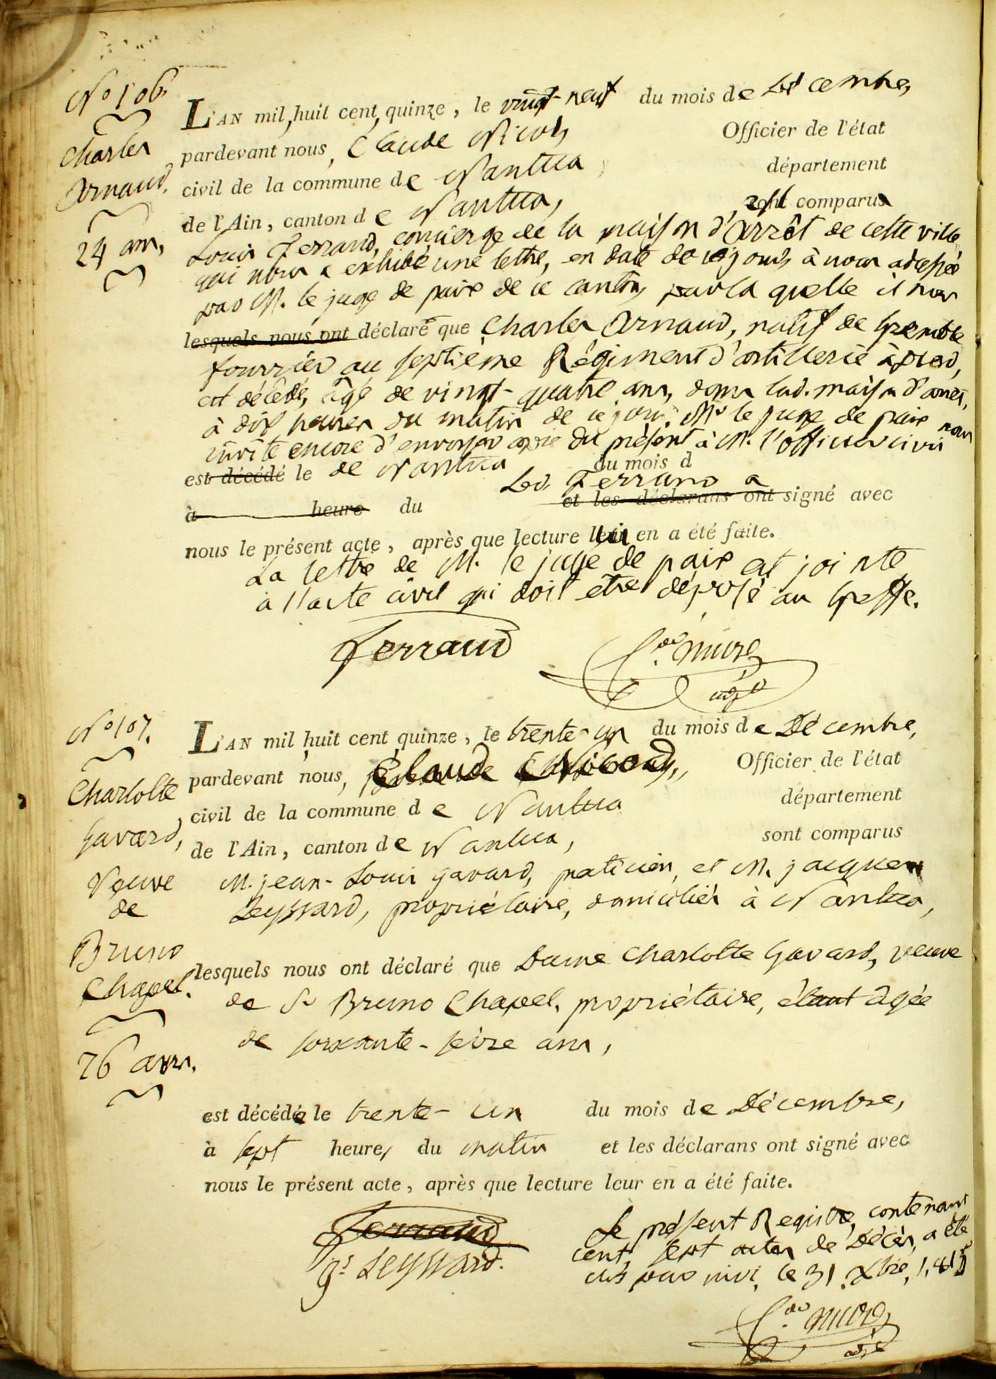 N.o 106.
Charles
Arnaud,
24 ans,
L'AN mil huit cent quinze, le vingt-neuf du mois de Décembre,
pardevant nous, Claude Nicod, Officier de l'état
civil de la commune de Nantua, département
de l'Ain, canton de Nantua, est comparu
Louis Ferraud, concierge de la maison d'arrêt de cette ville,
qui nous a exhibé une lettre, en date de ce jour, à nous adressée
par M. le juge de paix de ce canton, par la quelle il nous
lesquels nous ont déclaré que Charles Arnaud, natif de Grenoble
fourrier au septième Régiment d'artillerie à pied,
est décédé, âgé de vingt-quatre ans, dans lad. maison d'arrêt,
à dix heures du matin de ce jour. Mr le juge de paix nous
invite encore d'envoyer copie du présent à M. l'officier civil
est décédé le de Nantua du mois d
Led. Ferraud a
à heure du et les déclarans ont signé avec
nous le présent acte, après que lecture lui en a été faite.
La lettre de M. le juge de paix est jointe
à l'acte civil qui doit être déposé au Greffe.
Ferraud
N.o 107.
Charlotte
Gavard,
Veuve
de
Bruno
Chapel.
76 ans.
L'AN mil huit cent quinze, le trente-un du mois de Décembre,
pardevant nous, Claude Nicod, Officier de l'état
civil de la commune de Nantua département
de l'Ain, canton de Nantua, sont comparus
M. jean-Louis Gavard, praticien, et M. jacques
Leyssard, propriétaire, domiciliés à Nantua,
lesquels nous ont déclaré que Dame Charlotte Gavard, veuve
de Sr Bruno Chapel, propriétaire, étant âgée
de soixante-seize ans,
est décédée le trente-un du mois de Décembre,
à sept heures du matin et les déclarans ont signé avec
nous le présent acte, après que lecture leur en a été faite.
Ferraud
Leyssard.
Le présent Registre, contenant
cent sept actes de Décès, a été
clos par nous, ce 31 Xbre, 1815